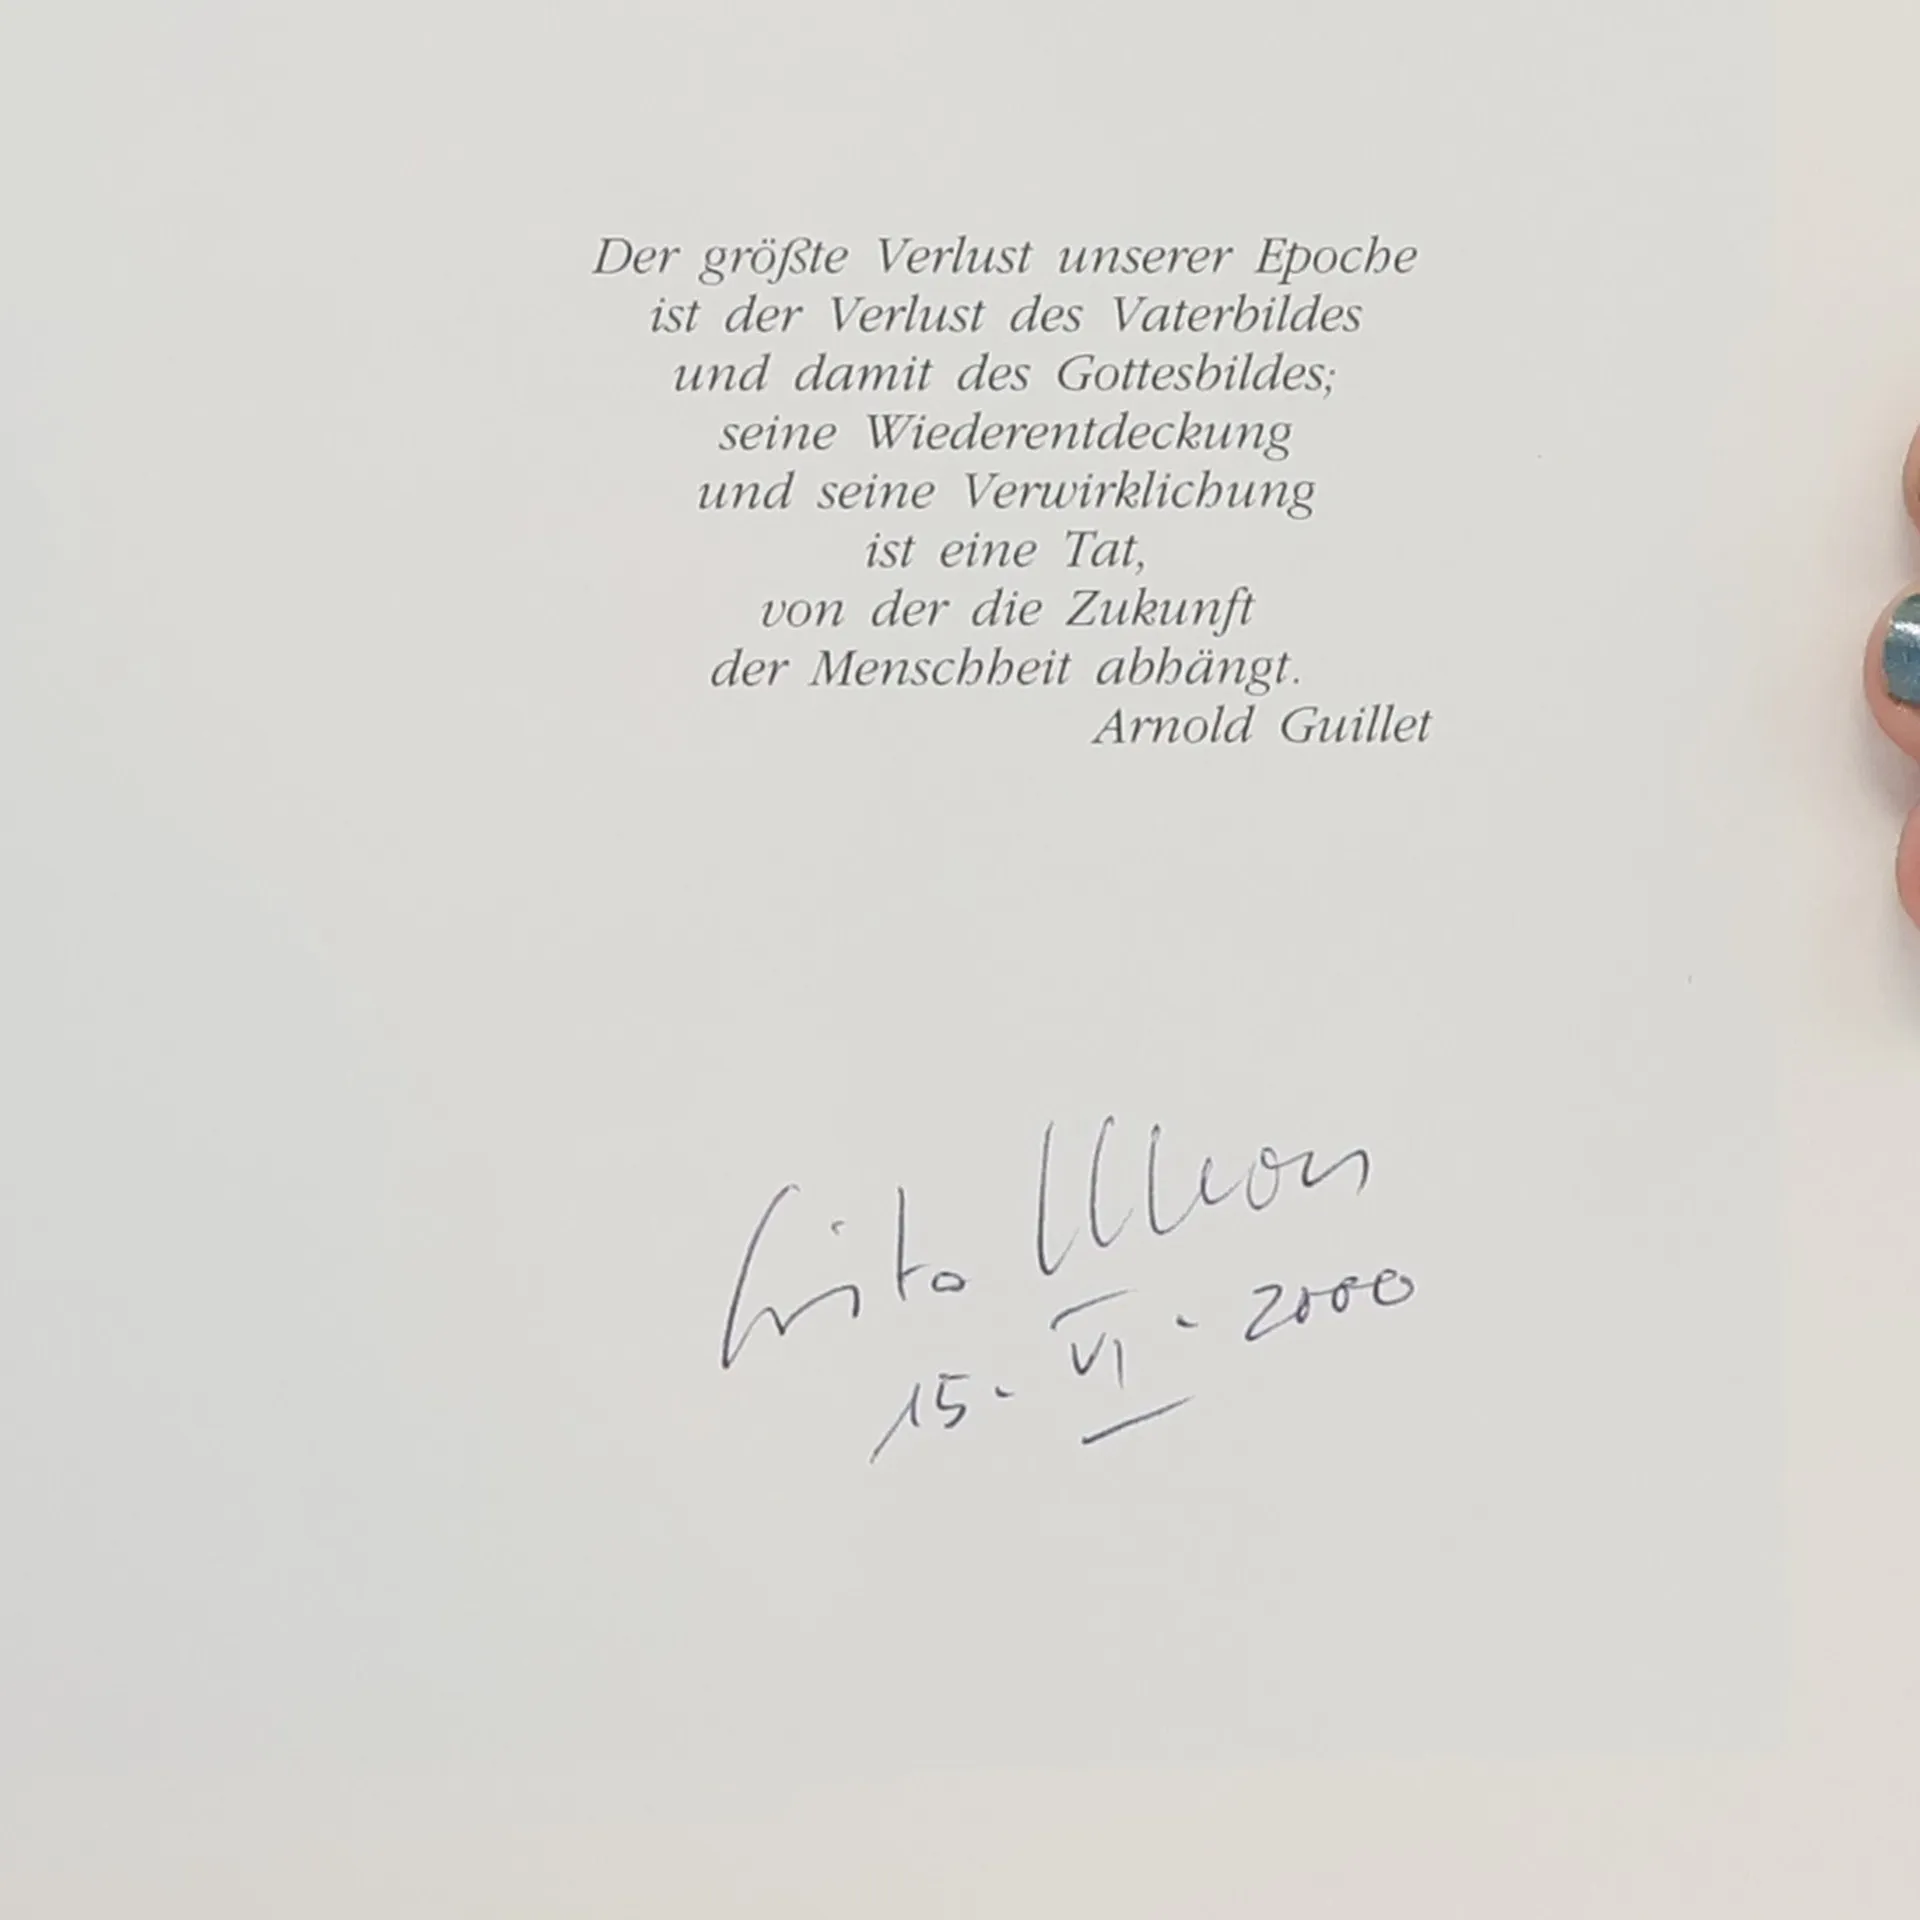 Der größte Verlust unserer Epoche
ist der Verlust des Vaterbildes
und damit des Gottesbildes;
seine Wiederentdeckung
und seine Verwirklichung
ist eine Tat,
von der die Zukunft
der Menschheit abhängt.
Arnold Guillet
15. VI. 2000